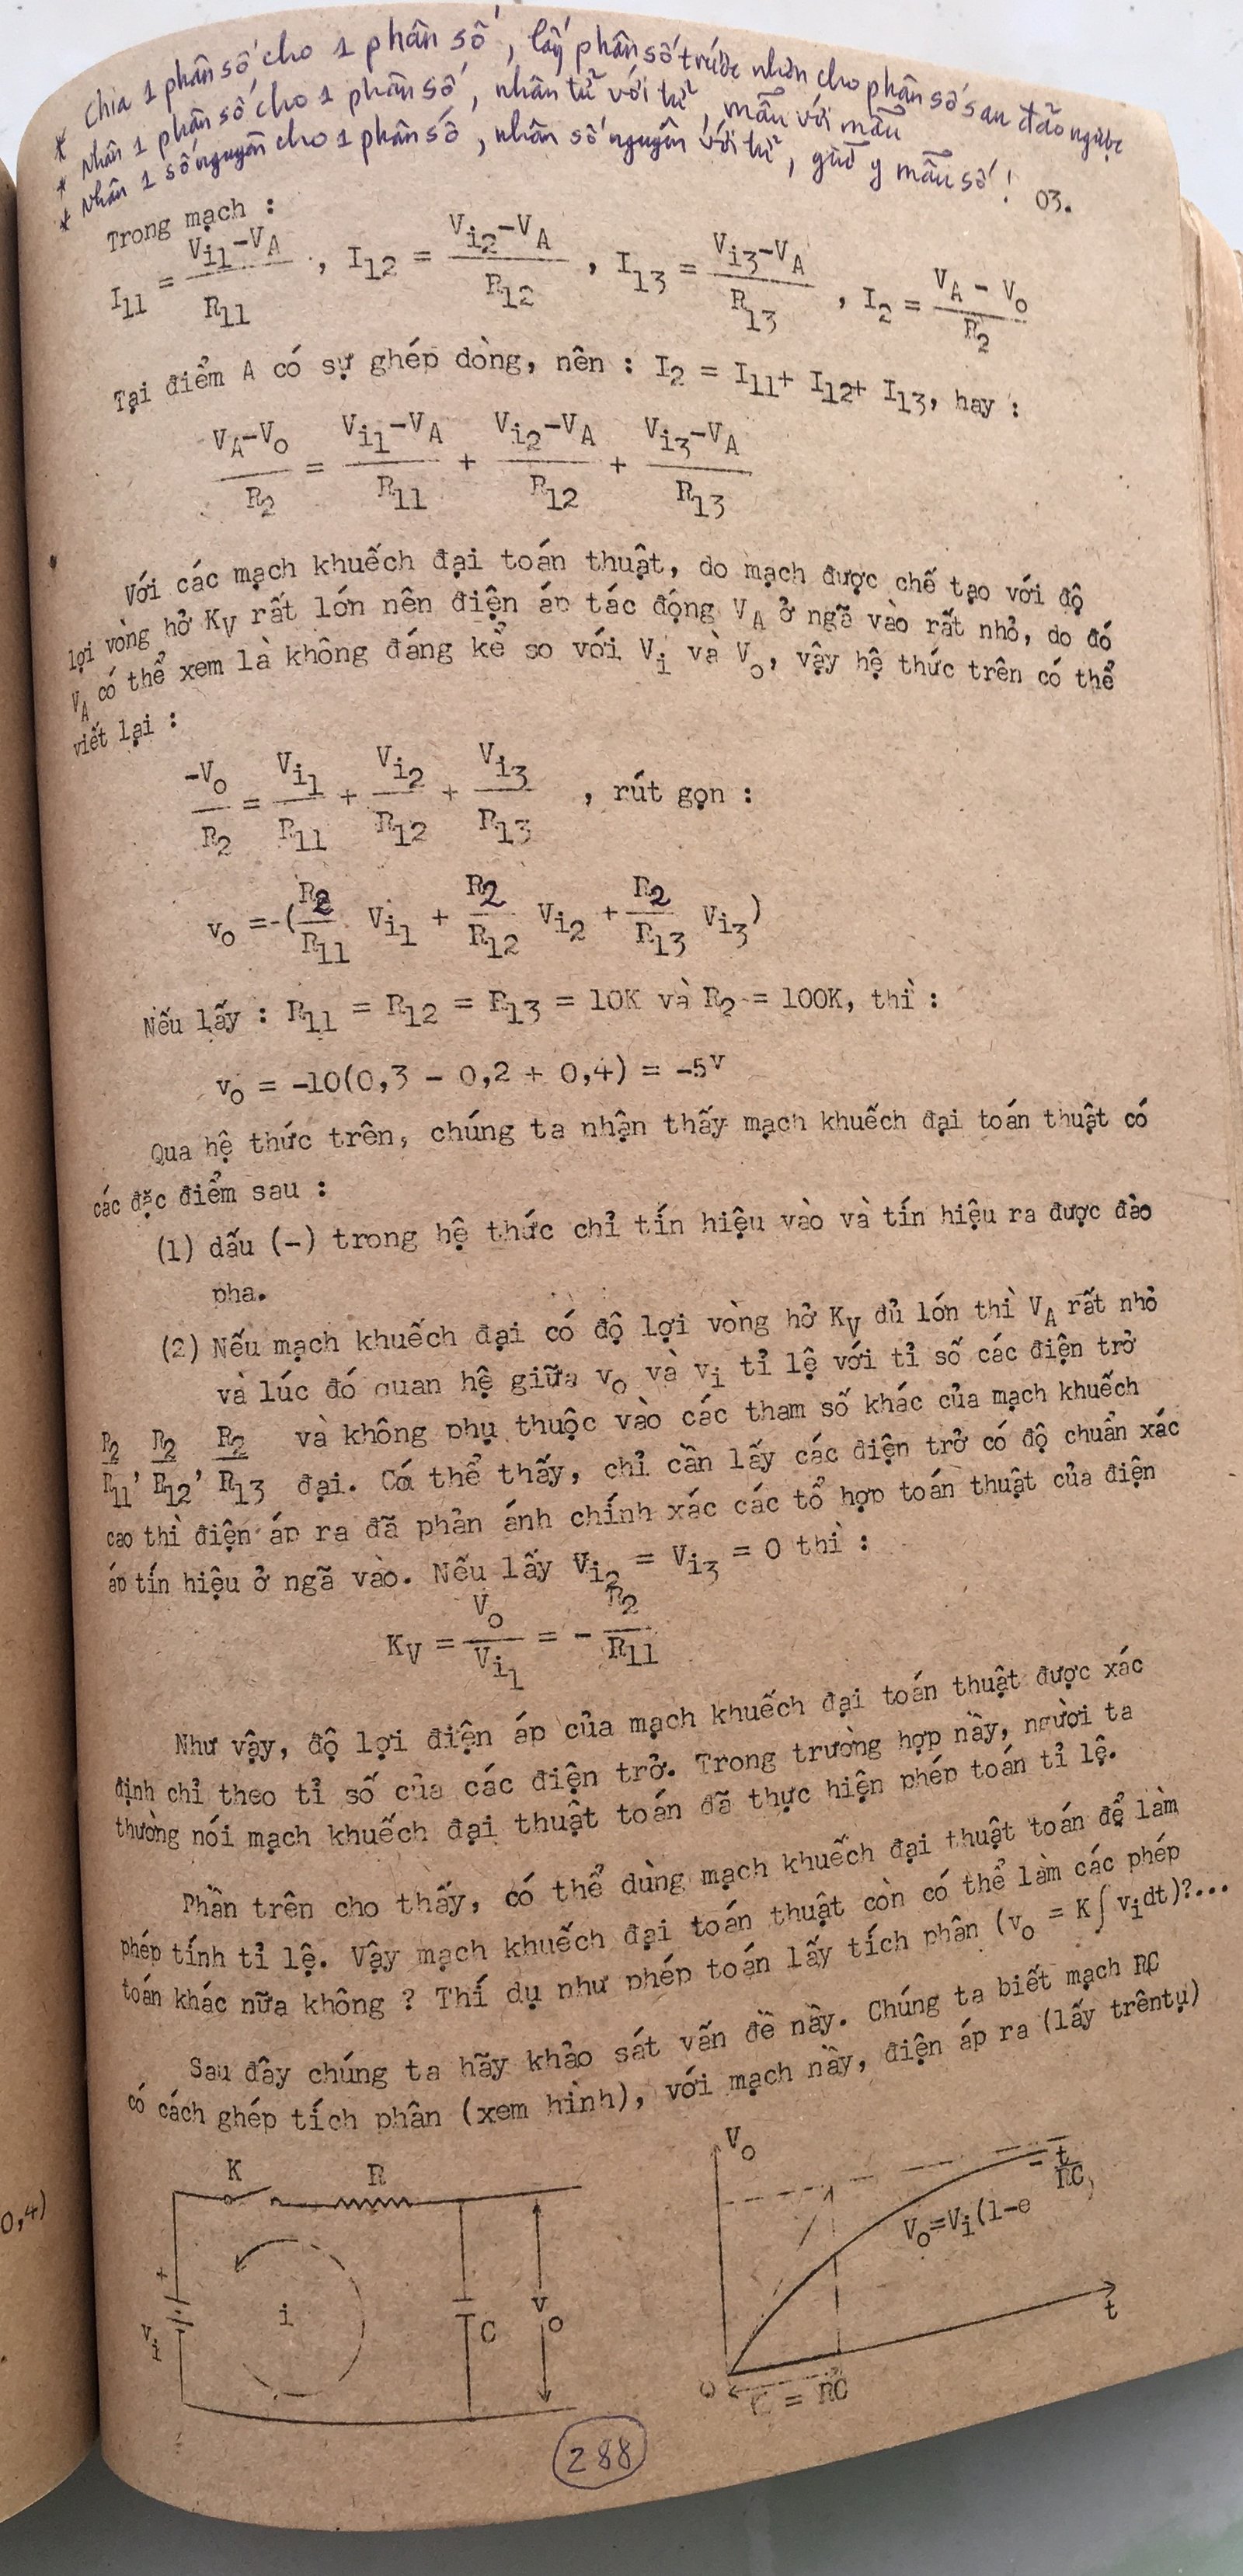 * Chia 1 phân số cho 1 phân số, lấy phân số trước nhân cho phân số sau đảo ngược
* Nhân 1 phân số cho 1 phân số, nhân tử với tử, mẫu với mẫu
* Nhân 1 số nguyên cho 1 phân số, nhân số nguyên với tử, giữ y mẫu số!
03.
Trong mạch :
I11 = (Vi1-VA)/R11 , I12 = (Vi2-VA)/R12 , I13 = (Vi3-VA)/R13 , I2 = (VA - Vo)/R2
Tại điểm A có sự ghép dòng, nên : I2 = I11+ I12+ I13, hay :
(VA-Vo)/R2 = (Vi1-VA)/R11 + (Vi2-VA)/R12 + (Vi3-VA)/R13
Với các mạch khuếch đại toán thuật, do mạch được chế tạo với độ
lợi vòng hở KV rất lớn nên điện áp tác động VA ở ngã vào rất nhỏ, do đó
VA có thể xem là không đáng kể so với Vi và Vo, vậy hệ thức trên có thể
viết lại :
-Vo/R2 = Vi1/R11 + Vi2/R12 + Vi3/R13 , rút gọn :
vo =-(R2/R11 Vi1 + R2/R12 Vi2 + R2/R13 Vi3)
Nếu lấy : R11 = R12 = R13 = 10K và R2 = 100K, thì :
vo = -10(0,3 - 0,2 + 0,4) = -5v
Qua hệ thức trên, chúng ta nhận thấy mạch khuếch đại toán thuật có
các đặc điểm sau :
(1) dấu (-) trong hệ thức chỉ tín hiệu vào và tín hiệu ra được đảo
pha.
(2) Nếu mạch khuếch đại có độ lợi vòng hở KV đủ lớn thì VA rất nhỏ
và lúc đó quan hệ giữa vo và vi tỉ lệ với tỉ số các điện trở
R2/R11, R2/R12, R2/R13 và không phụ thuộc vào các tham số khác của mạch khuếch
đại. Có thể thấy, chỉ cần lấy các điện trở có độ chuẩn xác
cao thì điện áp ra đã phản ánh chính xác các tổ hợp toán thuật của điện
áp tín hiệu ở ngã vào. Nếu lấy Vi2 = Vi3 = 0 thì :
KV = Vo/Vi1 = - R2/R11
Như vậy, độ lợi điện áp của mạch khuếch đại toán thuật được xác
định chỉ theo tỉ số của các điện trở. Trong trường hợp này, người ta
thường nói mạch khuếch đại thuật toán đã thực hiện phép toán tỉ lệ.
Phần trên cho thấy, có thể dùng mạch khuếch đại thuật toán để làm
phép tính tỉ lệ. Vậy mạch khuếch đại toán thuật còn có thể làm các phép
toán khác nữa không ? Thí dụ như phép toán lấy tích phân (vo = K∫vidt)?...
Sau đây chúng ta hãy khảo sát vấn đề này. Chúng ta biết mạch RC
có cách ghép tích phân (xem hình), với mạch này, điện áp ra (lấy trêntụ)
K R
+
vi
i
C
vo
Vo
Vo=Vi(1-e -t/RC)
t
0
= RC
288
0,4)